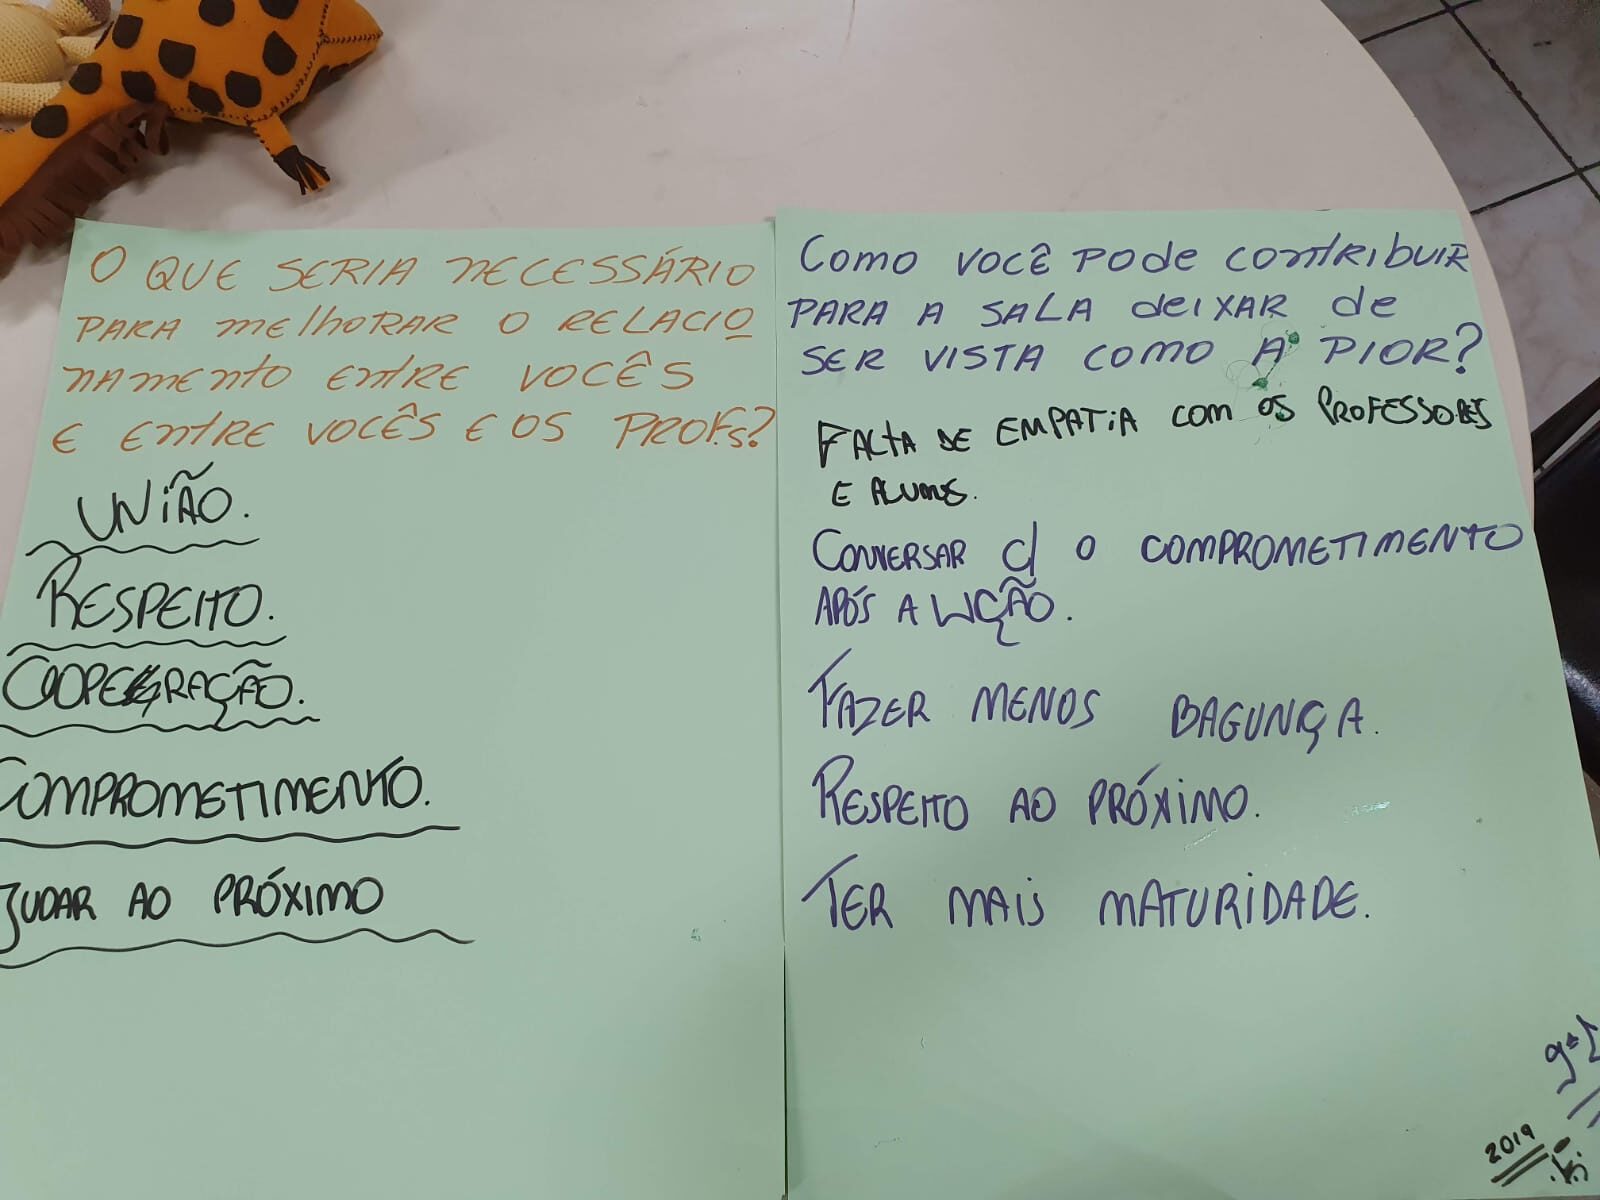 O QUE SERIA NECESSÁRIO
PARA melhoRAR O RELACIO
NAMENTO ENTRE VOCÊS
E ENTRE VOCÊS E OS PROFs?
UNIÃO.
RESPEITO.
COOPERAÇÃO.
COMPROMETIMENTO.
JUDAR AO PRÓXIMO
Como VOCÊ Pode contRIbUIR
PARA A SALA deIXAR de
SER VISTA COMO A PIOR?
FALTA DE EMPATiA COM OS PROFESSORES
E ALUNOS.
CONVERSAR C/ O COMPROMETIMENTO
APÓS A LIÇÃO.
FAZER MENOS BAGUNÇA.
RESPEITO AO PRÓXIMO.
TER MAiS MATURiDADE.
2019